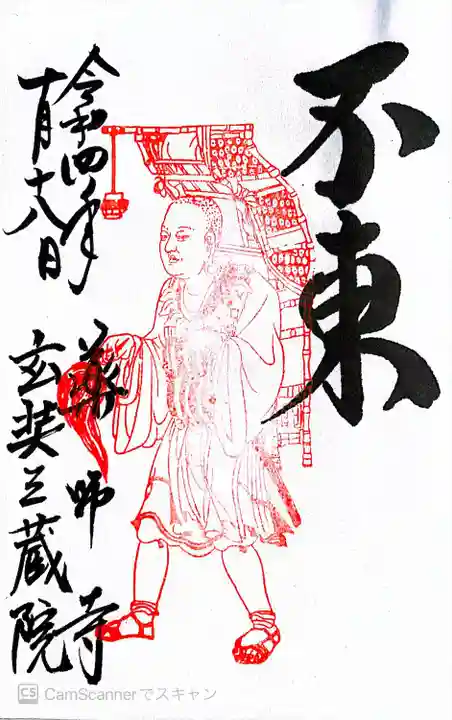 不東
令和四年
十月十八日
薬師寺
玄奘三蔵院
CS CamScannerでスキャン